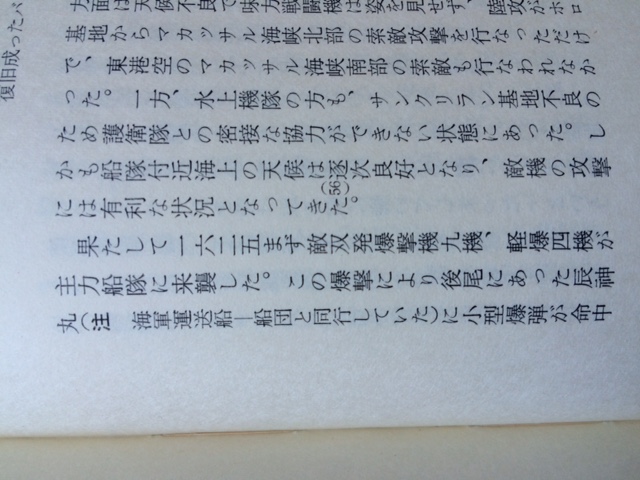 復旧成ったバ
方面は天候不良で味方戦闘機は姿を見せず、陸攻がホロ
基地からマカッサル海峡北部の索敵攻撃を行なっただけ
で、東港空のマカッサル海峡南部の索敵も行なわれなか
った。一方、水上機隊の方も、サンクリラン基地不良の
ため護衛隊との密接な協力ができない状態にあった。し
かも船隊付近海上の天候は逐次良好となり、敵機の攻撃
には有利な状況となってきた。(56)
果たして一六二五まず敵双発爆撃機九機、軽爆四機が
主力船隊に来襲した。この爆撃により後尾にあった辰神
丸(注 海軍運送船―船団と同行していた)に小型爆弾が命中